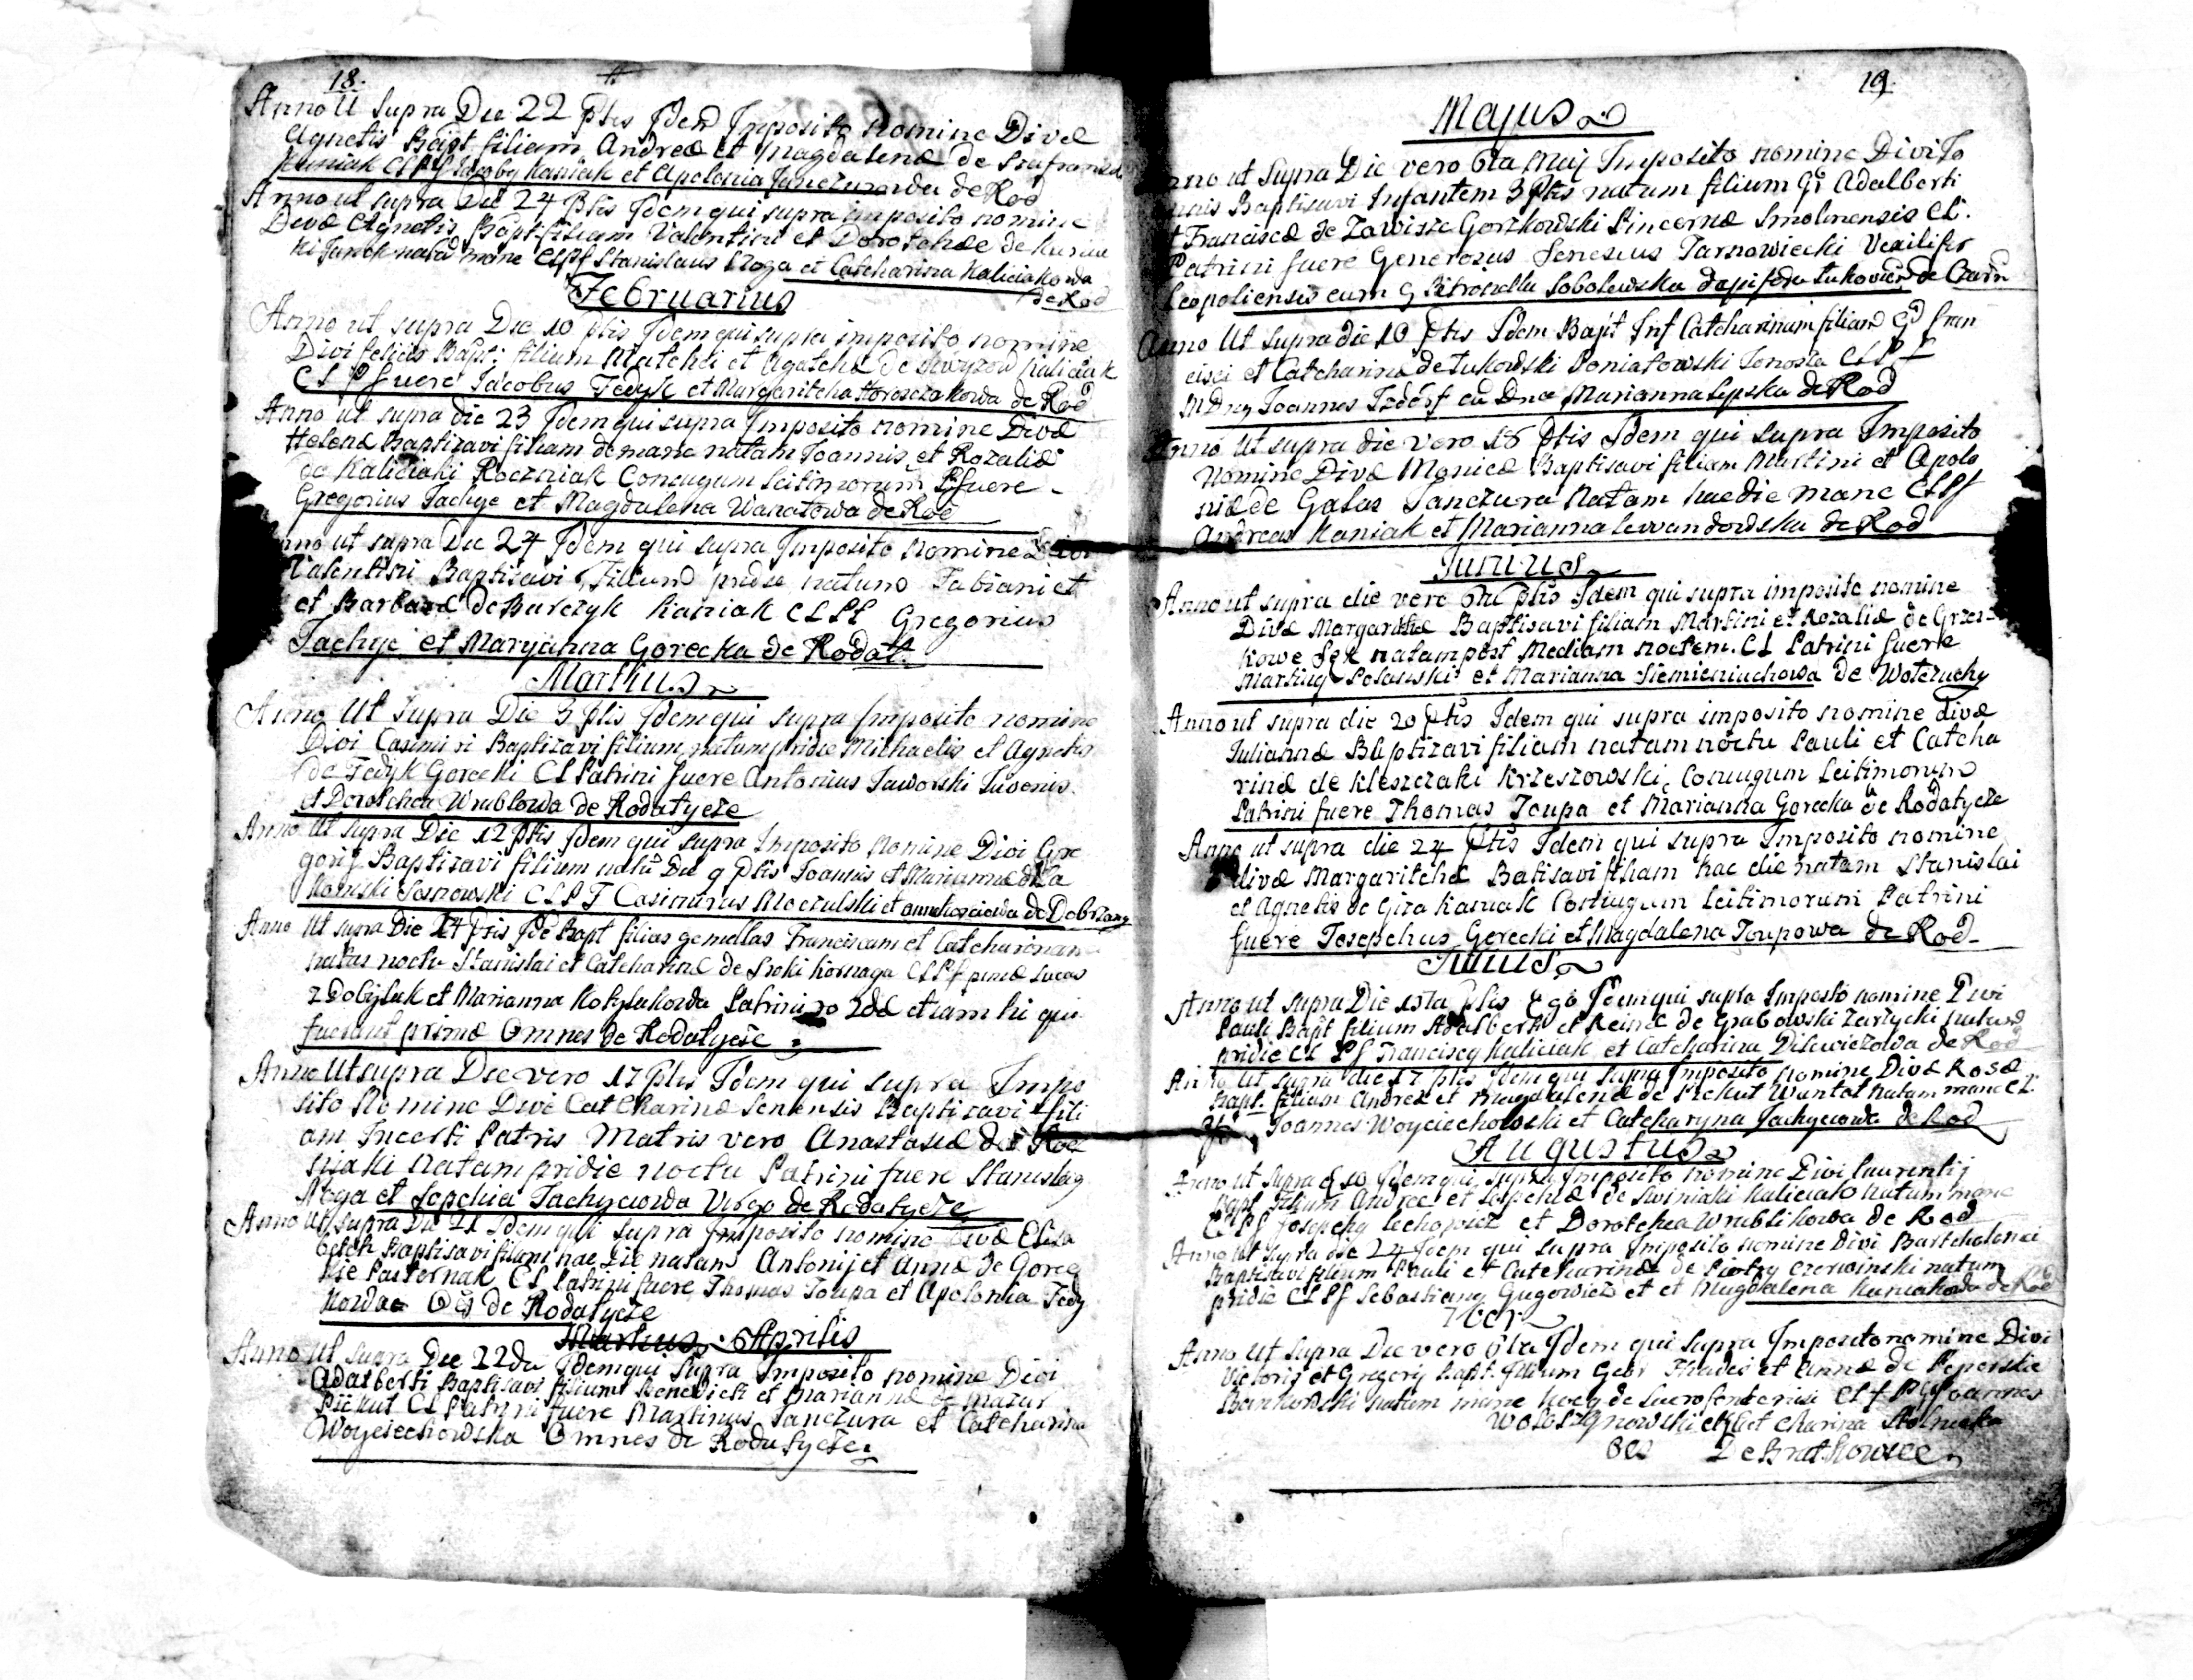 18.
Anno Ut Supra Die 22 Ptis Idem Imposito Nomine Divæ
Agnetis Bapt filiam Andreæ et Magdalenæ de
Kaniak CLPf Jacoby Kaniak et Apolonia Janczurowa de Rod
Anno ut supra Die 24 Ptis Idem qui supra imposito nomine
Divæ Agnetis Bapt filiam Valentini et Dorothæe de
natã mane CLPf Stanislaus Noga et Catcharina Kaliciakowa
de Rod
Februarius
Anno ut supra Die 10 Ptis Idem qui supra imposito nomine
Divi felicis Bapti filium Matchei et Agatchæ de Kaliciak
CLP fuere Jacobus Fedyk et Margaritcha Horoszczakowa de Rod
Anno ut supra die 23 Idem qui supra Imposito nomine Divæ
Helenæ Baptizavi filiam de mane natam Joannis et Rozaliæ
de Kaliciaki Roczniak Coniugum Leitimorum Pfuere
Gregorius Tachyc et Magdalena Wanatowa de Rod
Anno ut supra Die 24 Idem qui supra Imposito Nomine Divi
Valentini Baptisavi Filium pridie natum Fabiani et
et Barbaræ de Barczyk Kaniak CLPf Gregorius
Tachyc et Maryanna Gorecka de Rodat.
Martius
Anno Ut Supra Die 3 ptis Idem qui supra Imposito nomine
Divi Casimiri Baptizavi filium natum pridie Michaelis et Agnetis
de Fedyk Gorecki CL Patrini fuere Antonius Jaworski Juvenis
et Dorotchea Wrublowa de Rodatycze
Anno Ut supra Die 12 Ptis Idem qui supra Imposito Nomine Divi Gre
gorij Baptizavi filium natũ Die 9 Ptis Joannis et Mariannæ de
Sosnowski CLPf Casimirus Moczulski et de Dobrzany
Anno Ut supra Die 14 Ptis Idẽ Bapt filias gemellas Franciscam et Catcharinam
natas noctu Stanislai et Catcharinæ de Sroki Kornaga CLPf primæ Lucas
Zdobylak et Marianna Kobylakowa Patrini 2dæ etiam hi qui
fuerunt primæ Omnes de Rodatycze
Anno Ut supra Die vero 17 Ptis Idem qui supra Impo
sito Nomine Divæ Catcharinæ Senensis Baptizavi fili
am Incerti Patris Matris vero Anastasiæ de Rocz
niaki natam pridie noctu Patrini fuere Stanislaỹ
Noga et Sopchia Tachycowa Virgo de Rodatycze
Anno Ut supra Die 21 Idem qui supra Imposito nomine Divæ Elisa
betch Baptisavi filiam hac Die natam Antonij et Annæ de Gorec
kie Pasternak CL Patrini fuere Thomas Toupa et Apolonia Fedy
kowa Oẽs de Rodatycze
Martius Aprilis
Anno ut supra Die 22da Idem qui supra Imposito nomine Divi
Adalberti Baptisavi filium Benedicti et Mariannæ de Mazur
Piekut CL Patrini fuere Martinus Janczura et Catcharina
Woyciechowska Omnes de Rodatycze
19.
Majus
Anno ut Supra Die vero 6ta Maij Imposito nomine Divi Jo
annis Baptisavi Infantem 3 Ptis natum filium Gi Adalberti
et Franciscæ de Zawisze Gorzkowski Pincernæ Smolnensis CL.
Patrini fuere Generosus Senesius Tarnowiecki Vexilifer
Leopoliensis cum G Pitronella Sobolewska dapifera Lukoviens de Czarn
Anno Ut Supra die 10 Ptis Idem Bapt Inf Catcharinam filiam Gd Fran
cisci et Catcharinæ de Lukowski Poniatowski CLPf
MDny Joannes Izdorf cũ Dna Marianna Lipska de Rod
Anno Ut supra die vero 16 Ptis Idem qui supra Imposito
Nomine Divæ Monicæ Baptisavi filiam Martini et Apolo
niæ de Galas Janczura Natam hac die mane CLPf
Andreas Kaniak et Marianna Lewandowska de Rod
Junius
Anno ut supra die vero 6ta ptis Idem qui supra imposito nomine
Divæ Margaritæ Baptisavi filiam Martini et Rozaliæ de Grzes-
kowe Sęk natam post Mediam noctem. CL Patrini fuere
Martiny et Marianna Siemieniuchowa de Woteruchy
Anno ut supra die 20 Ptis Idem qui supra imposito nomine divæ
Juliannæ Baptizavi filiam natam noctu Pauli et Catcha
rinæ de Kleszczaki Krzeszowski Coniugum Leitimorum
Patrini fuere Thomas Toupa et Marianna Gorecka de Rodatycze
Anno ut supra die 24 Ptis Idem qui supra Imposito nomine
divæ Margaritchæ Batisavi filiam hac die natam Stanislai
et Agnetis de Giza Kaniak Coniugum Leitimorum Patrini
fuere Josepchus Gorecki et Magdalena Toupowa de Rod
Julius
Anno ut supra Die Ptis Ego Idem qui supra Imposito nomine Divi
Pauli Bapt filium Adalberti et Reginæ de Grabowski Zarzycki natum
pridie CL Pf Franciscy Kaliciak et Catcharina Dilewiczowa de Rod
Anno Ut supra die 17 ptis Idem qui supra Imposito Nomine Divæ Rosæ
Bapt. filiam Andreæ et Magdalenæ de Piekut Wantat natam mane CL
Pf Joannes Woyciechowski et Catcharyna Tachycowa de Rod
Augustus
Anno ut supra d 10 Idem qui supra Imposito nomine Divi Laurentij
Bapt filium Andreæ et Sopchiæ de Swiniaki Kaliciak natum mane
CLPf Josepchy Lechowicz et Dorotchea Wrublikowa de Rod
Anno ut supra die 24 Idem qui supra Imposito nomine Divi Bartcholomei
Baptisavi filium Pauli et Catcharinæ de Piotry Czerwinski natum
pridie CLPf Sebastiany Gugowicz et et Magdalena Kaniakowa de Rod
7bris
Anno ut supra Die vero 6ta Idem qui supra Imposito nomine Divi
Victoris et Gregorij bapt. filium Gebi Thadei et Annæ de Peperskie
Bankowski natum mane CLf PG Joannes
Wołoszynowski et Catcharina Stolnicka
Oẽs De Bratkowice